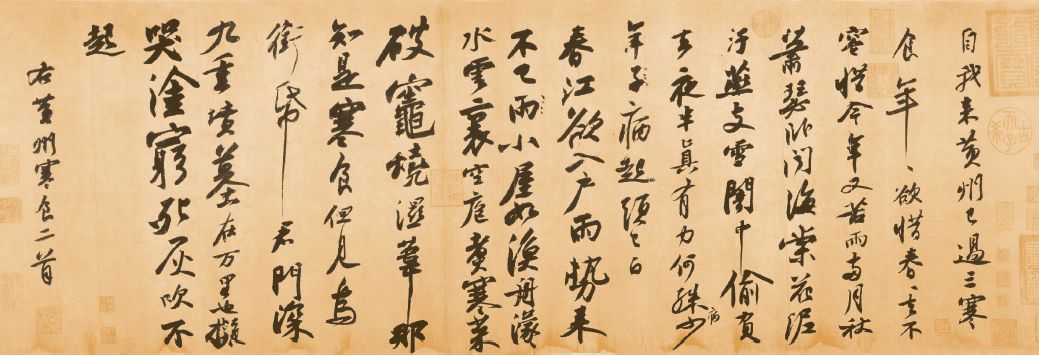 自我來黃州已過三寒
食年〻欲惜春〻去不
容惜今年又苦雨兩月秋
蕭瑟卧聞海棠花泥
汙燕支雪闇中偷負
去夜半真有力何殊少病
年子病起頭已白
春江欲入戶雨勢來
不已雨小屋如漁舟濛〻
水雲裏空庖煮寒菜
破竈燒濕葦那
知是寒食但見烏
銜帋君門深
九重墳墓在万里也擬
哭塗窮死灰吹不
起
右黃州寒食二首
古希天子